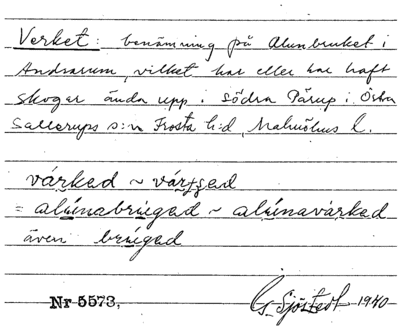 Verket: benämning på Alunbruket i
Andrarum, vilket har eller har haft
skogar ända upp i södra Pårup i Östra
Sallerups s:n Frosta h:d, Malmöhus l.
várkad ~ vártjad
= alúnabrúgad ~ alúnavárkad
även brúgad
Nr 5573,
G. Sjöstedt 1940